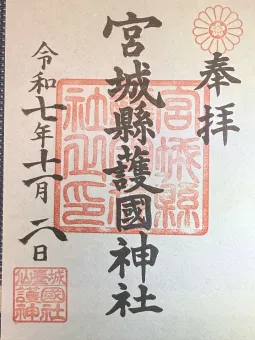 奉拝
宮城縣護國神社
宮城縣
護國神
社之印
令和七年十一月日
仙臺城
護國
神社